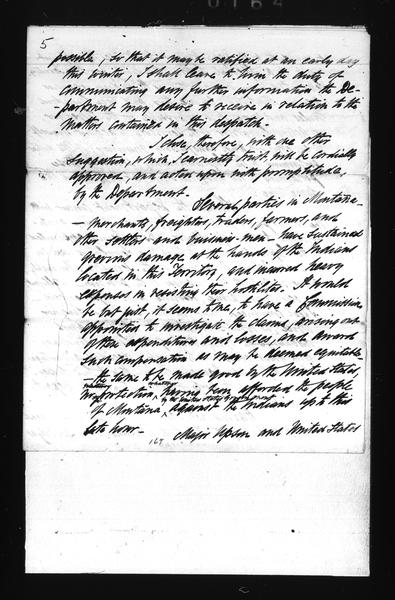 5
possible, so that it may be ratified at an early day
this winter, I shall leave to him the duty of
communicating any further information the De-
-partment may desire to receive in relation to the
matters contained in this despatch.
I close, therefore, with one other
suggestion, which, I earnestly trust will be cordially
approved, and acted upon with promptitude,
by the Department.
Several parties in Montana
- merchants, freighters, traders, farmers, and
other settlers and business men - have sustained
grievous damage at the hands of the Indians
located in this Territory, and incurred heavy
expenses in resisting their hostilities. It would
be but just, it seems to me, to have a Commission
appointed to investigate the claims, arising out
of these expenditures and losses, and award
such compensation as may be deemed equitable
the same to be made good by the United States,
no protection, having been afforded the people
by the United States Government
of Montana, against the Indians up to this
late hour.
Major Upson and United States